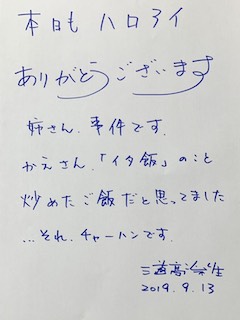 本日も ハロアイ
ありがとうございます
姉さん、事件です。
かえさん、「イタ飯」のこと
炒めたご飯だと思ってました
…それ、チャーハンです。
2019.9.13